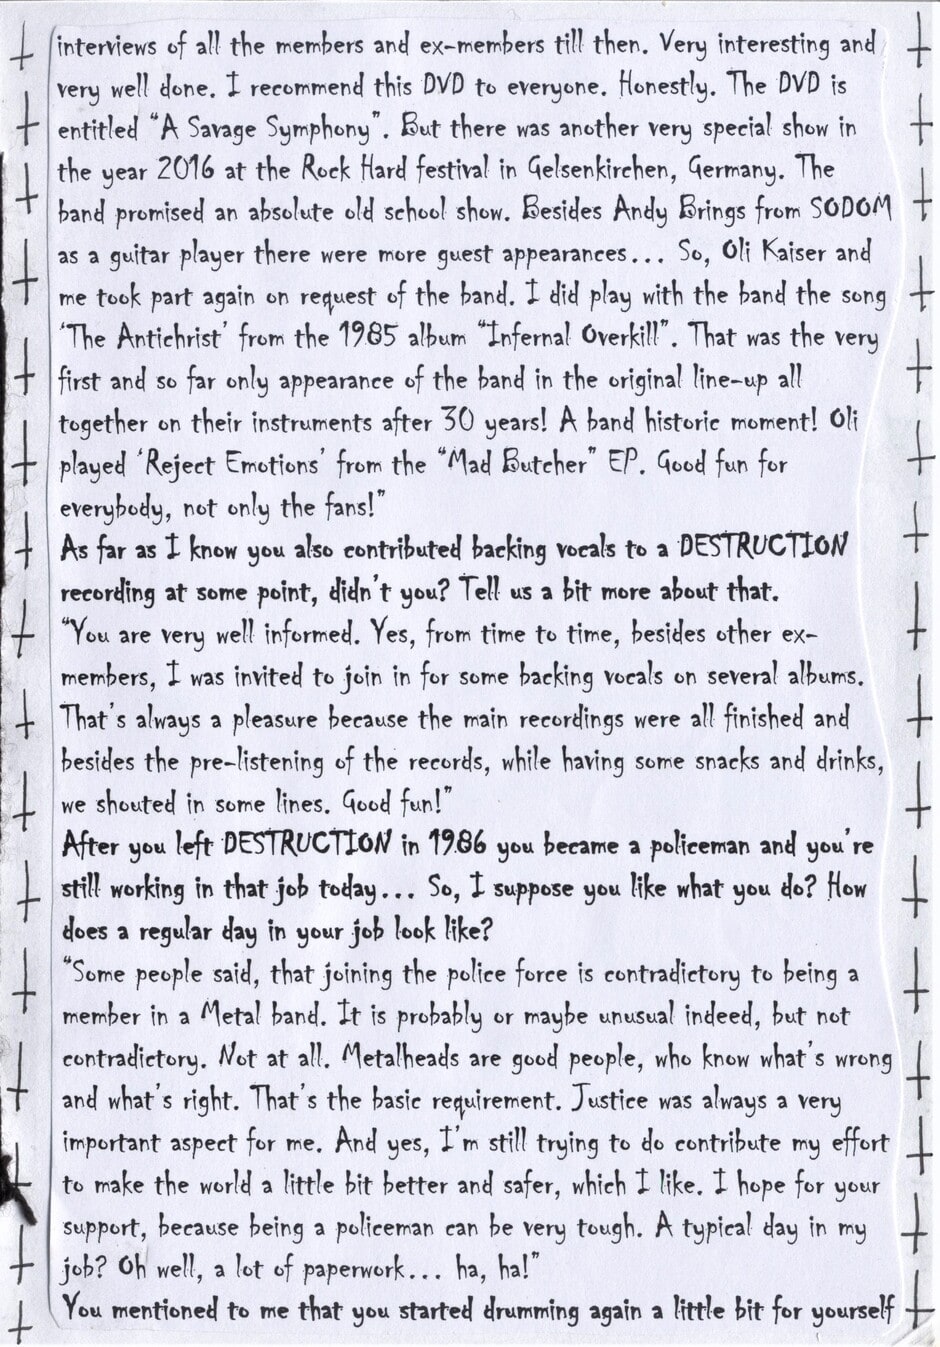 interviews of all the members and ex-members till then. Very interesting and
very well done. I recommend this DVD to everyone. Honestly. The DVD is
entitled “A Savage Symphony”. But there was another very special show in
the year 2016 at the Rock Hard festival in Gelsenkirchen, Germany. The
band promised an absolute old school show. Besides Andy Brings from SODOM
as a guitar player there were more guest appearances... So, Oli Kaiser and
me took part again on request of the band. I did play with the band the song
‘The Antichrist’ from the 1985 album “Infernal Overkill”. That was the very
first and so far only appearance of the band in the original line-up all
together on their instruments after 30 years! A band historic moment! Oli
played ‘Reject Emotions’ from the “Mad Butcher” EP. Good fun for
everybody, not only the fans!”
As far as I know you also contributed backing vocals to a DESTRUCTION
recording at some point, didn’t you? Tell us a bit more about that.
“You are very well informed. Yes, from time to time, besides other ex-
members, I was invited to join in for some backing vocals on several albums.
That’s always a pleasure because the main recordings were all finished and
besides the pre-listening of the records, while having some snacks and drinks,
we shouted in some lines. Good fun!”
After you left DESTRUCTION in 1986 you became a policeman and you’re
still working in that job today... So, I suppose you like what you do? How
does a regular day in your job look like?
“Some people said, that joining the police force is contradictory to being a
member in a Metal band. It is probably or maybe unusual indeed, but not
contradictory. Not at all. Metalheads are good people, who know what’s wrong
and what’s right. That’s the basic requirement. Justice was always a very
important aspect for me. And yes, I’m still trying to do contribute my effort
to make the world a little bit better and safer, which I like. I hope for your
support, because being a policeman can be very tough. A typical day in my
job? Oh well, a lot of paperwork... ha, ha!”
You mentioned to me that you started drumming again a little bit for yourself